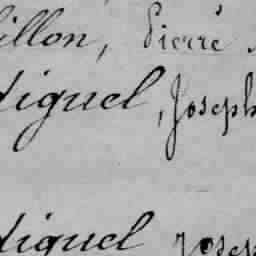 illon, Pierre
diguel, Joseph
diguel Joseph